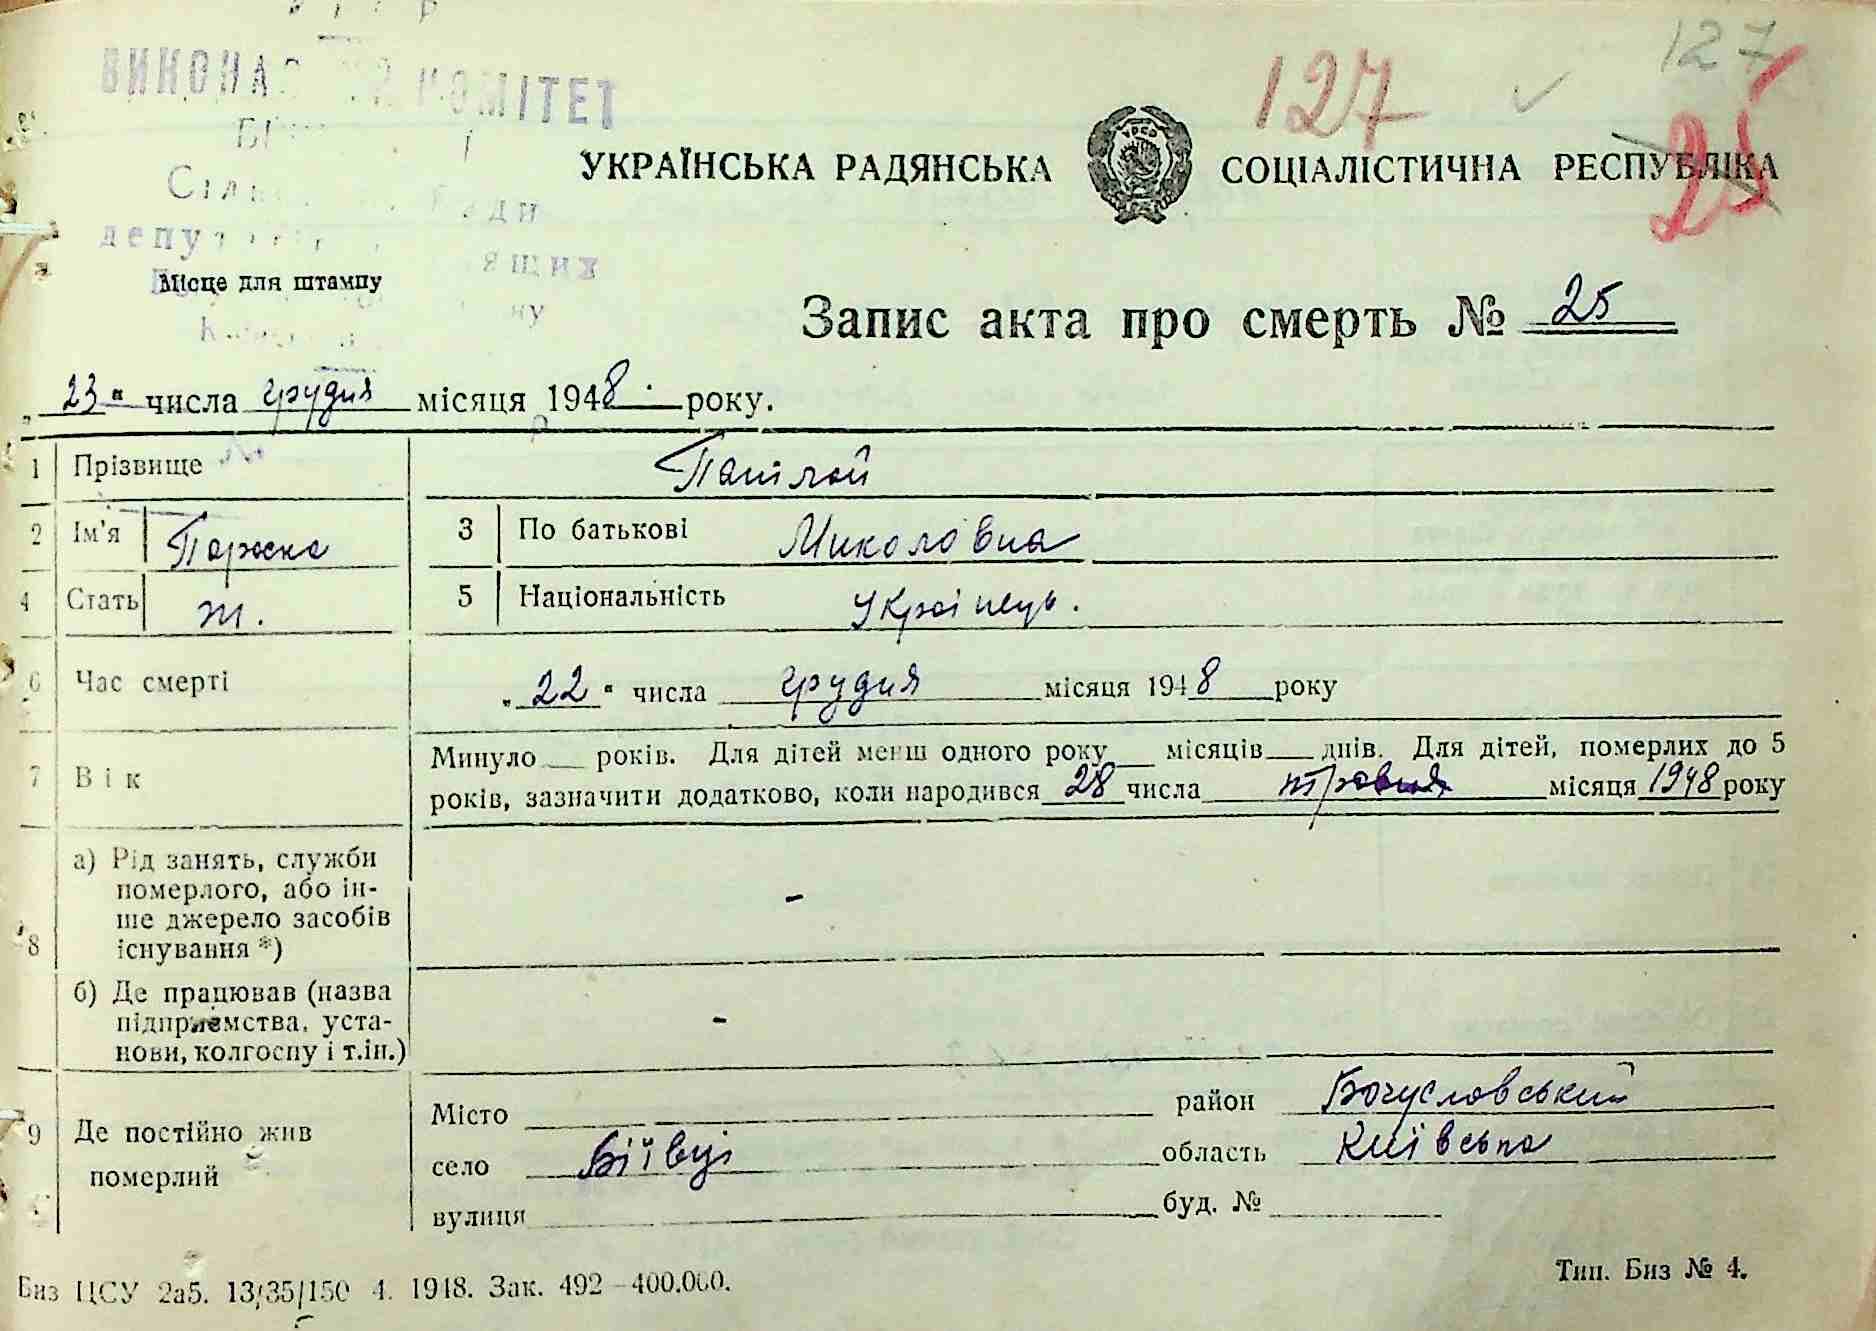 УРСР
ВИКОНАВЧИЙ КОМІТЕТ
депутатів трудящих
127
127
25
УКРАЇНСЬКА РАДЯНСЬКА СОЦІАЛІСТИЧНА РЕСПУБЛІКА
Місце для штампу
Запис акта про смерть № 25
„23" числа грудня місяця 1948 року.
1 Прізвище
2 Ім'я Парска 3 По батькові Миколовна
4 Стать ж. 5 Національність Українець.
6 Час смерті „22" числа грудня місяця 1948 року
7 Вік Минуло __ років. Для дітей менш одного року __ місяців __ днів. Для дітей, померлих до 5
років, зазначити додатково, коли народився 28 числа травня місяця 1948 року
8 а) Рід занять, служби
померлого, або ін-
ше джерело засобів
існування *) -
б) Де працював (назва
підприємства, уста-
нови, колгоспу і т.ін.) -
9 Де постійно жив
померлий
Місто район Богуславський
село Біївці область Київська
вулиця буд. №
Биз ЦСУ 2а5. 13/35/150 4. 1948. Зак. 492—400.000.
Тип. Биз № 4.